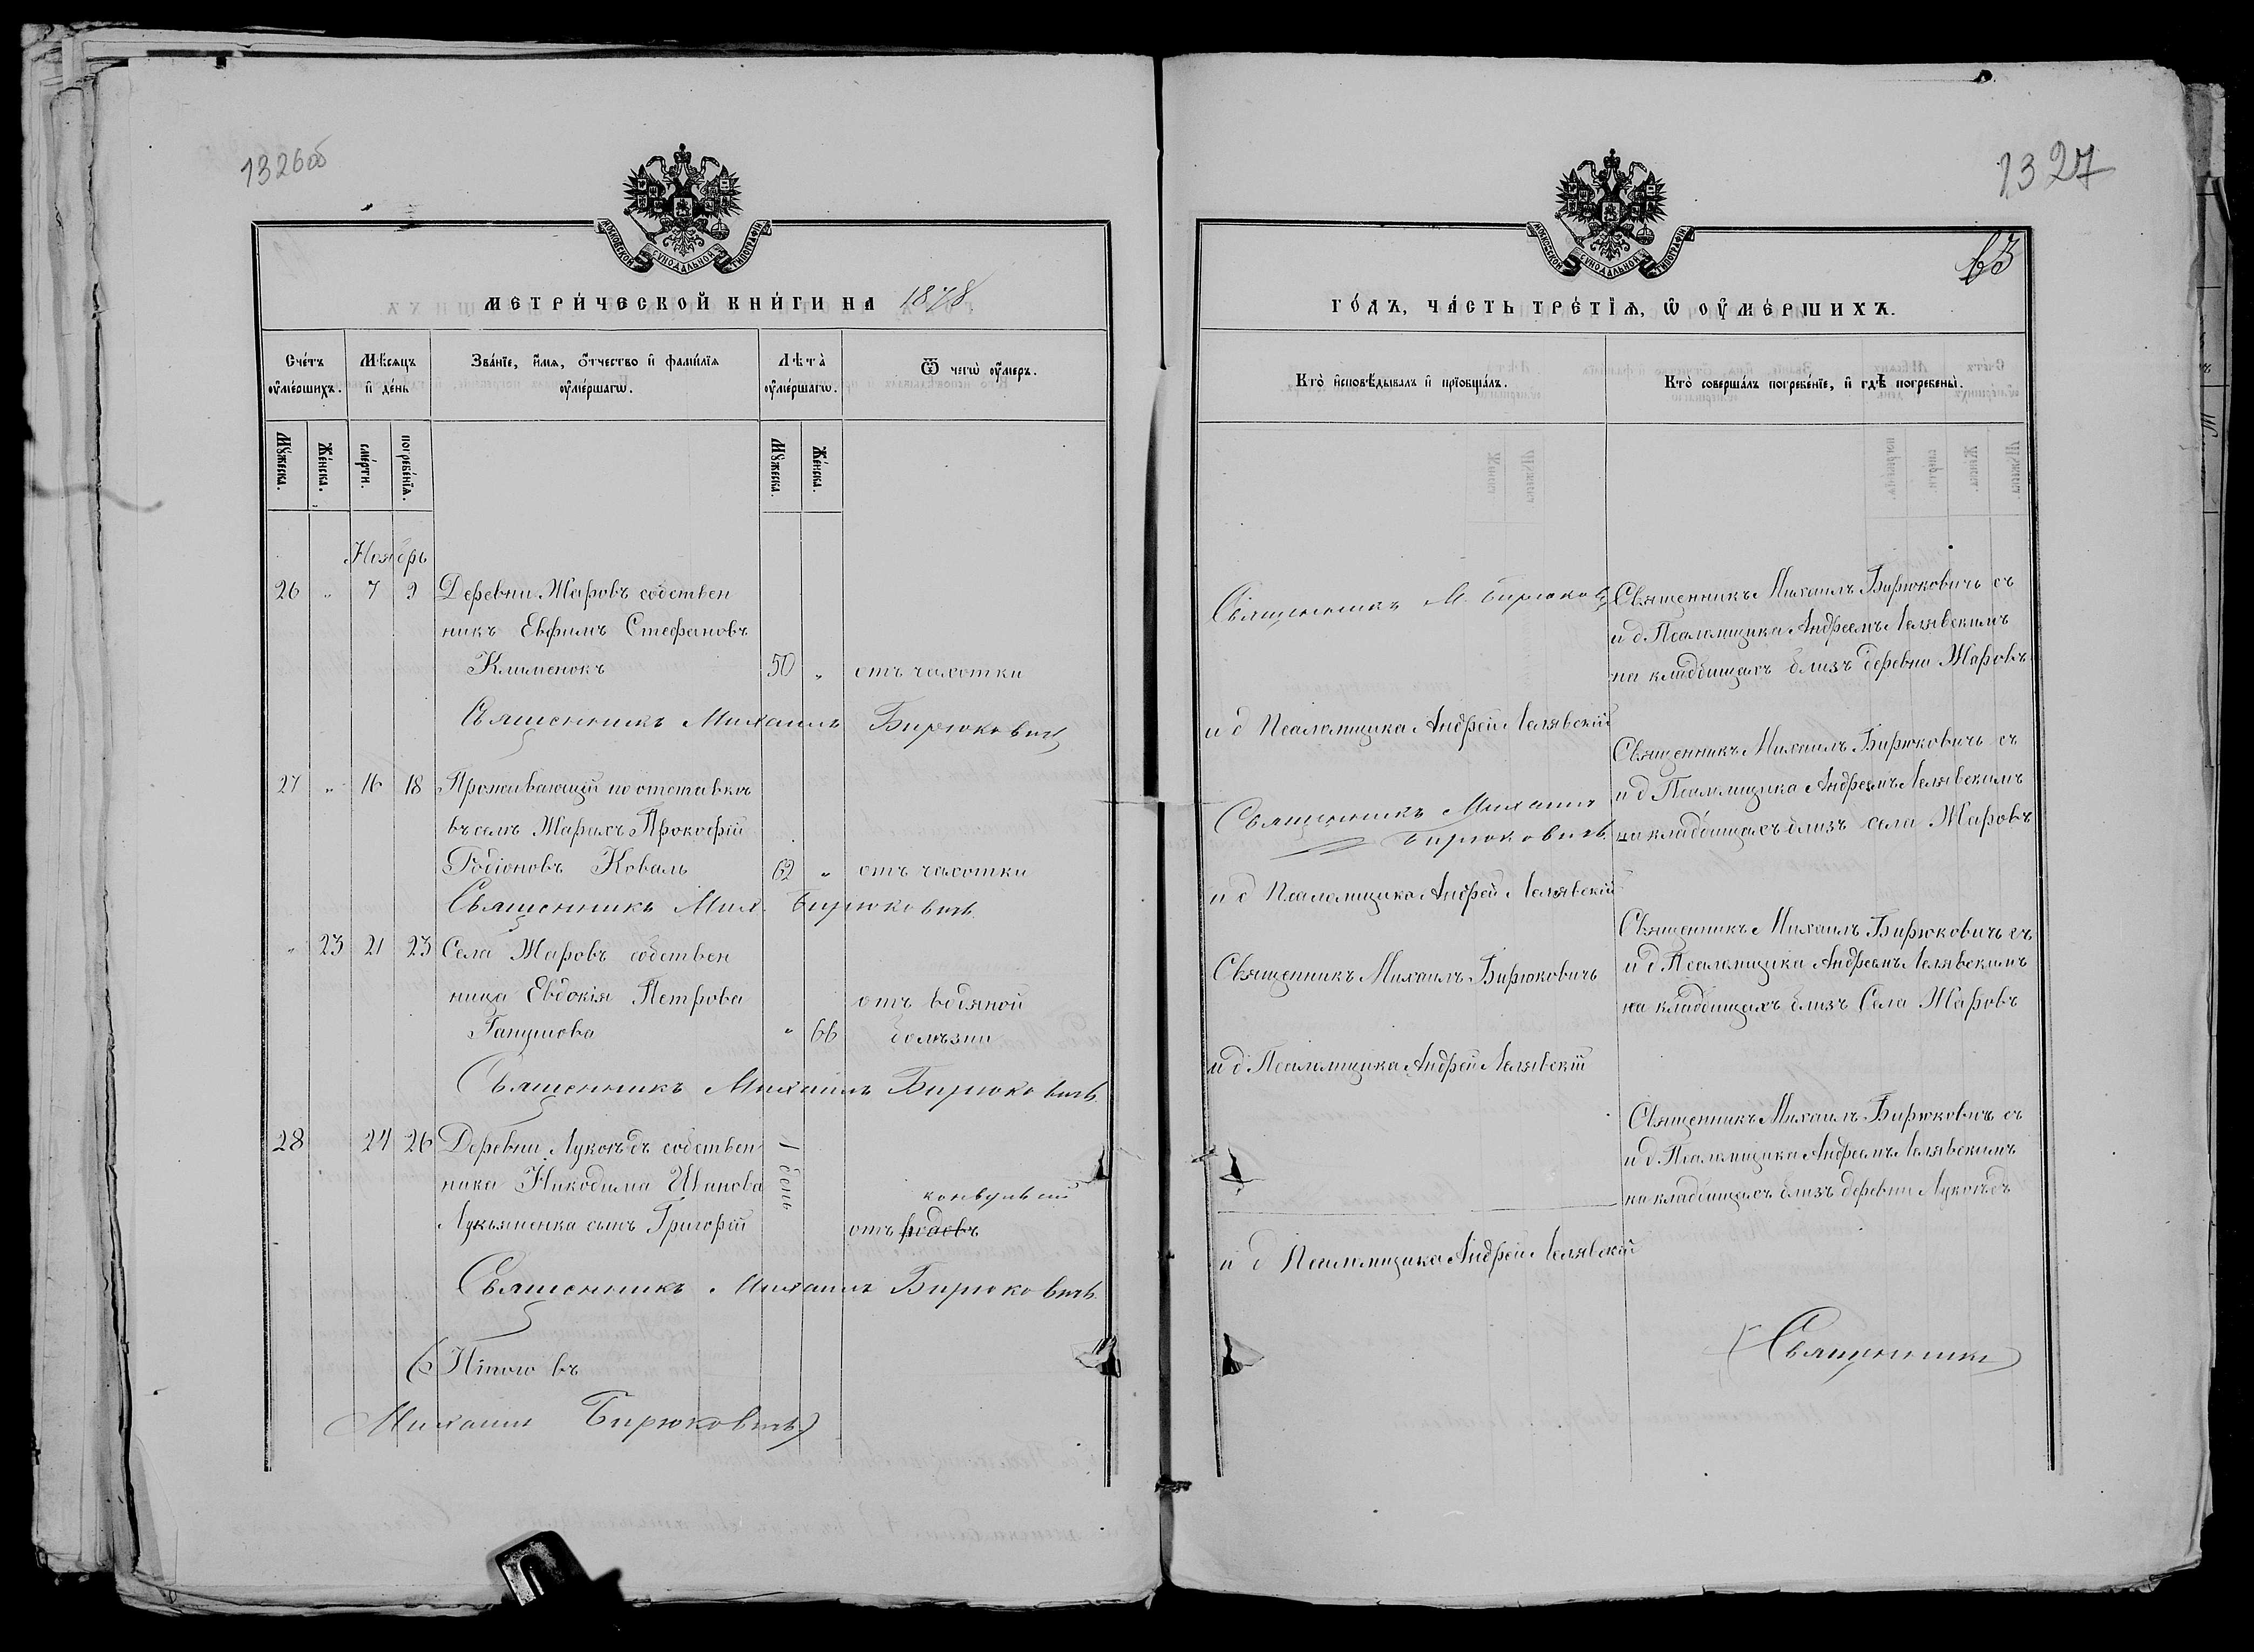 1326об
МОСКОВСКОЙ СУНОДАЛЬНОЙ ТИПОГРАФІИ
МЕТРИ́ЧЕСКОЙ КНИ́ГИ НА 1878
Сче́тъ ᲂу҆ме́ршихъ.
Мѣ́сяцъ и҆ де́нь
Зва́нїе, и҆́мя, ѻ҆́тчество и҆ фами́лїя ᲂу҆ме́ршагѡ.
Лѣ́та̀ ᲂу҆ме́ршагѡ.
Ѿ чегѡ̀ ᲂу҆́меръ.
Мꙋ́жеска.
Же́нска.
сме́рти.
погребе́нїѧ.
Мꙋ́жеска.
Же́нска.
Ноябрь
26 " 7 9 Деревни Жаровъ собствен
никъ Евфимъ Стефановъ
Клименокъ 50 " отъ чахотки
Священникъ Михаилъ Бирюковичъ
27 " 16 18 Проживающій по отставкѣ
въ селѣ Жарахъ Прокофій
Родіоновъ Коваль 62 " отъ чахотки
Священникъ Мих. Бирюковичъ
" 23 21 23 Села Жаровъ собствен
ница Евдокія Петрова отъ водяной
" 66 болѣзни
Священникъ Михаилъ Бирюковичъ
28 24 26 Деревни собствен 1 день
ника Никодима Иванова конвульсій
Лукьяненка сынъ Григорій отъ родовъ
Священникъ Михаилъ Бирюковичъ
Итого въ
Михаилъ Бирюковичъ
1327
МОСКОВСКОЙ СУНОДАЛЬНОЙ ТИПОГРАФІИ
63
ГО́ДЪ, ЧА́СТЬ ТРЕ́ТЇѦ, Ѡ҆ ОУ҆МЕ́РШИХЪ.
Кто̀ и҆сповѣ́дывалъ и҆ прїѡбща́лъ.
Кто̀ соверша́лъ погребе́нїе, и҆ гдѣ̀ погребены̀.
Священникъ М. Бирюковичъ
и д Псаломщика Андрей Лелявскій
Священникъ Михаилъ Бирюковичъ съ
и д Псаломщика Андреемъ Лелявскимъ
на кладбищахъ близъ деревни Жаровъ
Священникъ Михаилъ
Бирюковичъ
и д Псаломщика Андрей Лелявскій
Священникъ Михаилъ Бирюковичъ съ
и д Псаломщика Андреемъ Лелявскимъ
на кладбищахъ близъ села Жаровъ
Священникъ Михаилъ Бирюковичъ
и д Псаломщика Андрей Лелявскій
Священникъ Михаилъ Бирюковичъ съ
и д Псаломщика Андреемъ Лелявскимъ
на кладбищахъ близъ Села Жаровъ
и д Псаломщика Андрей Лелявскій
Священникъ Михаилъ Бирюковичъ съ
и д Псаломщика Андреемъ Лелявскимъ
на кладбищахъ близъ деревни
Священникъ